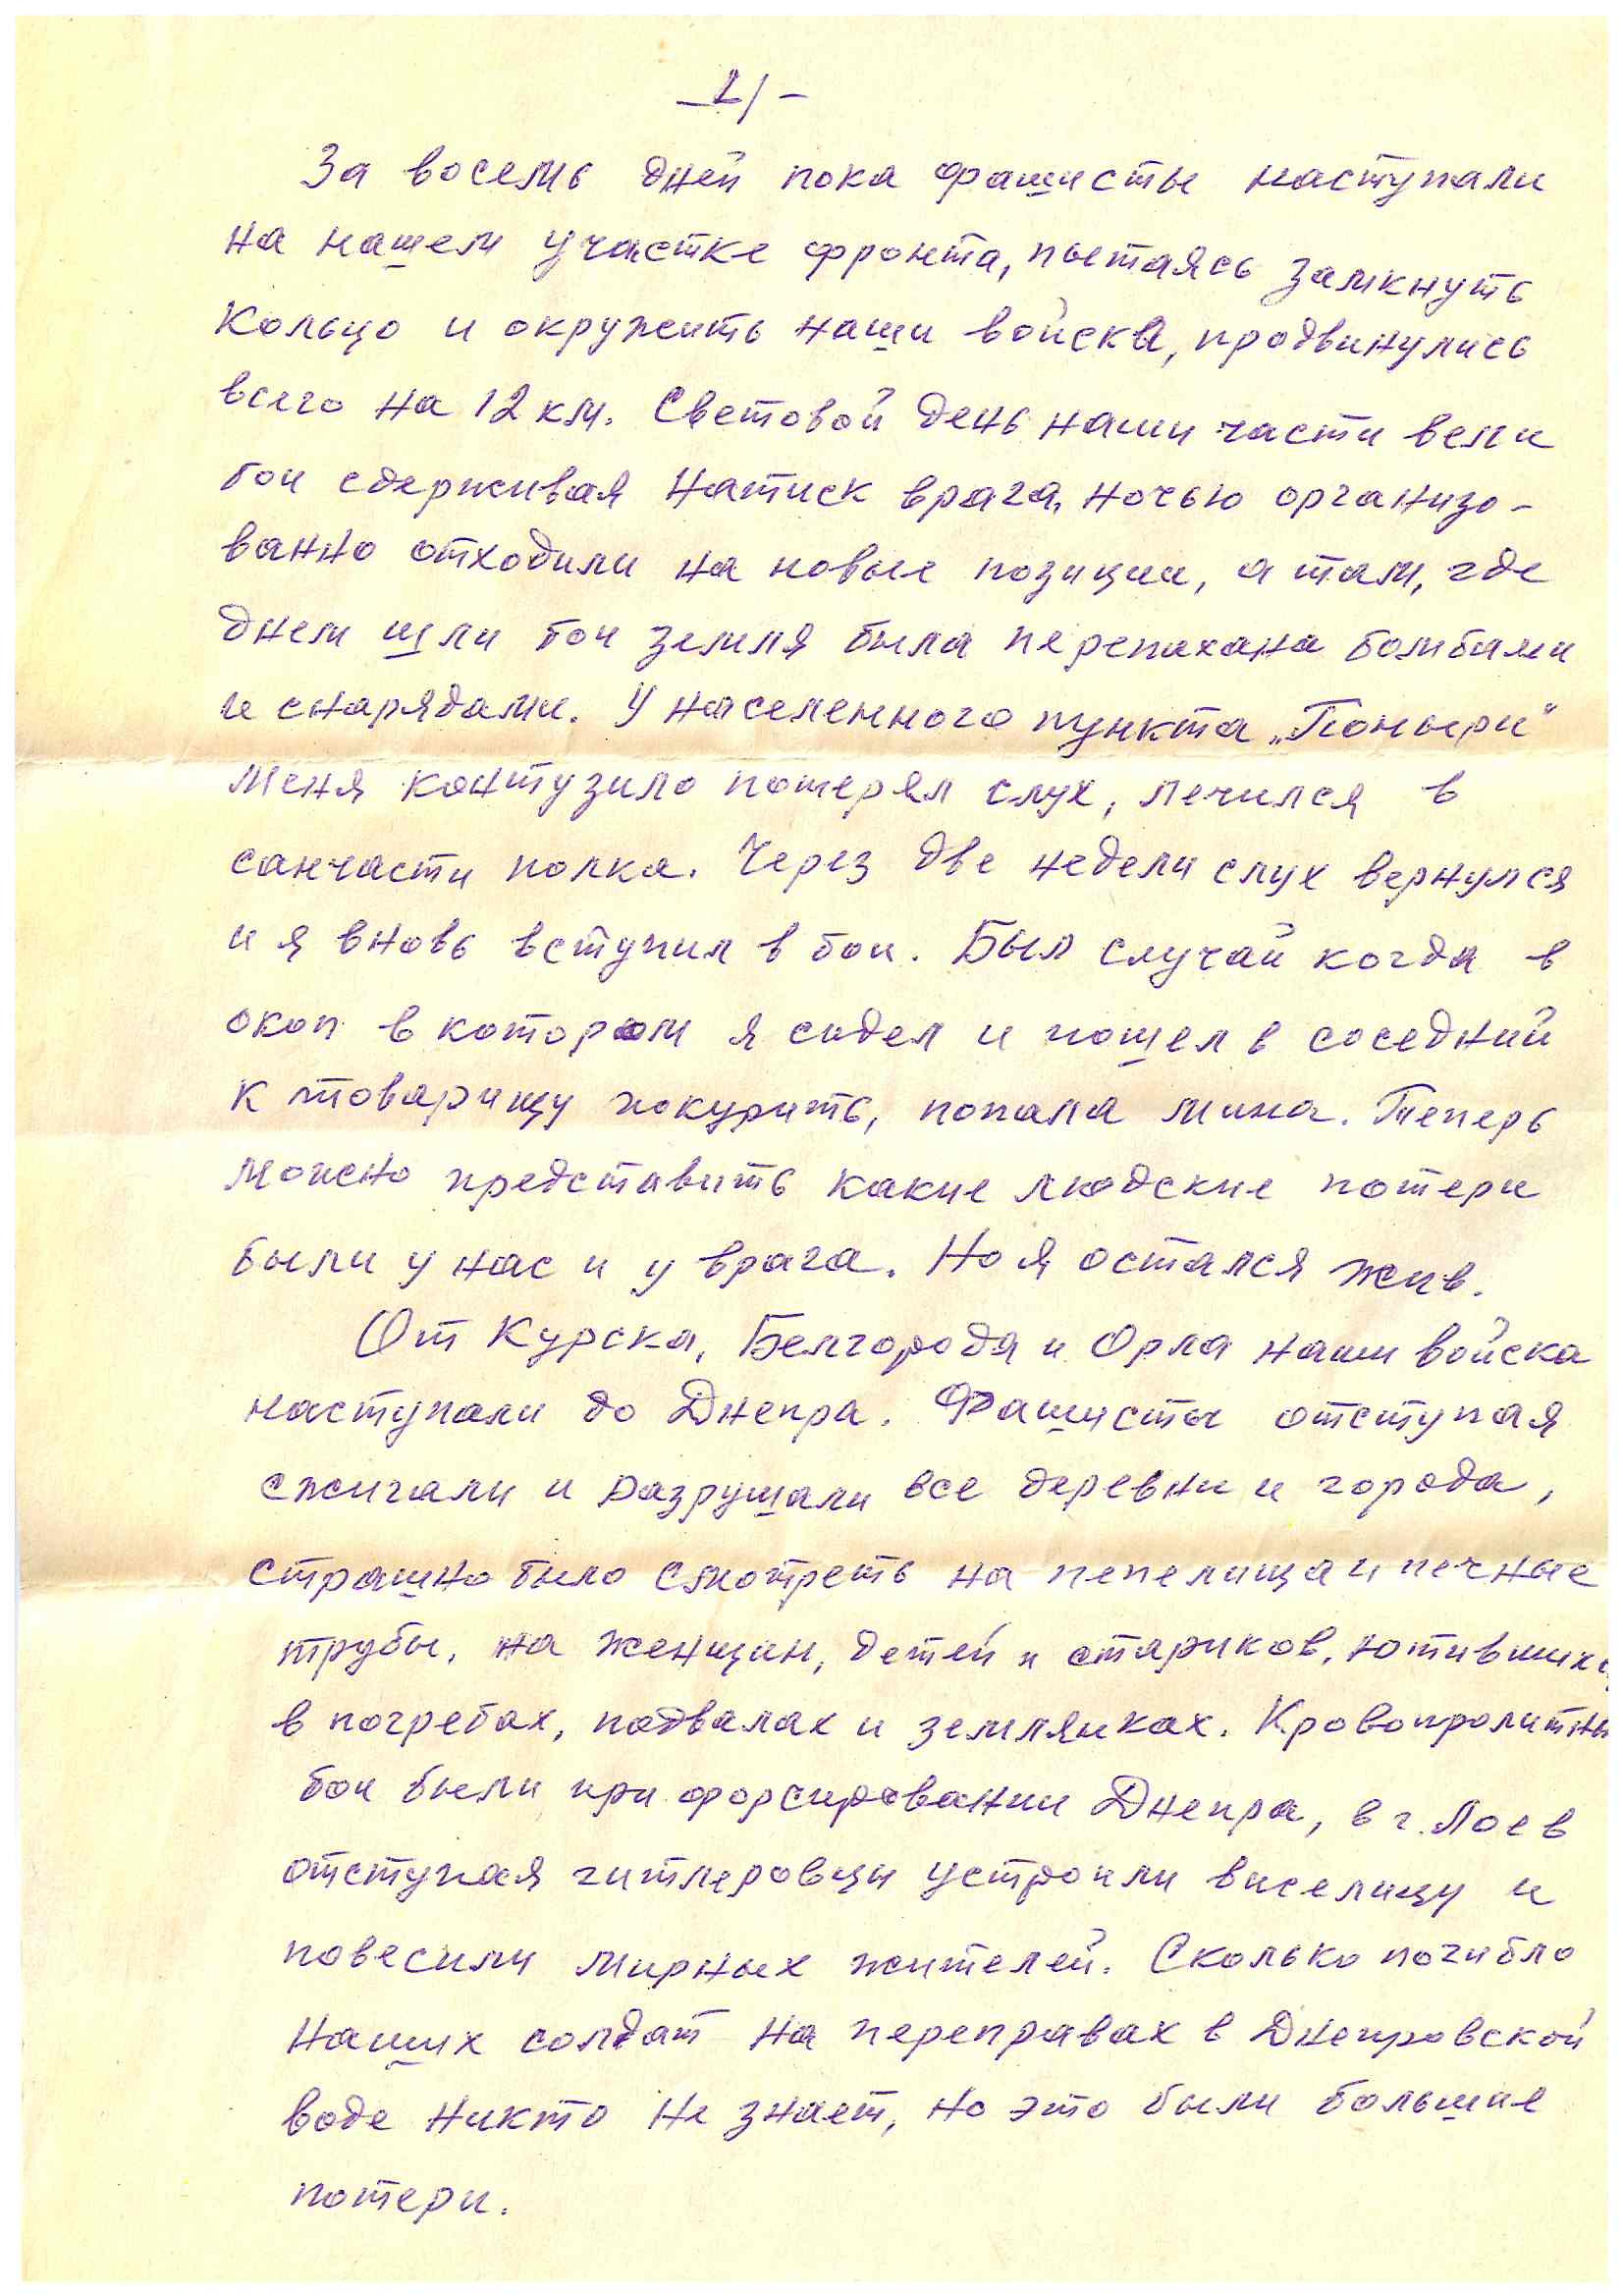 За восемь дней пока фашисты наступали
на нашем участке фронта, пытаясь замкнуть
кольцо и окружить наши войска, продвинулись
всего на 12 км. Световой день наши части вели
бои сдерживая натиск врага, ночью организо-
ванно отходили на новые позиции, а там, где
днем шли бои земля была перепахана бомбами
и снарядами. У населенного пункта „Поныри"
меня контузило потерял слух, лечился в
санчасти полка. Через две недели слух вернулся
и я вновь вступил в бои. Был случай когда в
окоп в котором я сидел и пошел в соседний
к товарищу покурить, попала мина. Теперь
можно представить какие людские потери
были у нас и у врага. Но я остался жив.
От Курска, Белгорода и Орла наши войска
наступали до Днепра. Фашисты отступая
сжигали и разрушали все деревни и города,
страшно было смотреть на пепелища и печные
трубы, на женщин, детей и стариков, ютившихс
в погребах, подвалах и землянках. Кровопролитны
бои были при форсировании Днепра, в г. Лоев
отступая гитлеровцы устроили виселицу и
повесили мирных жителей. Сколько погибло
наших солдат на переправах в Днепровской
воде никто не знает, но это были большие
потери.